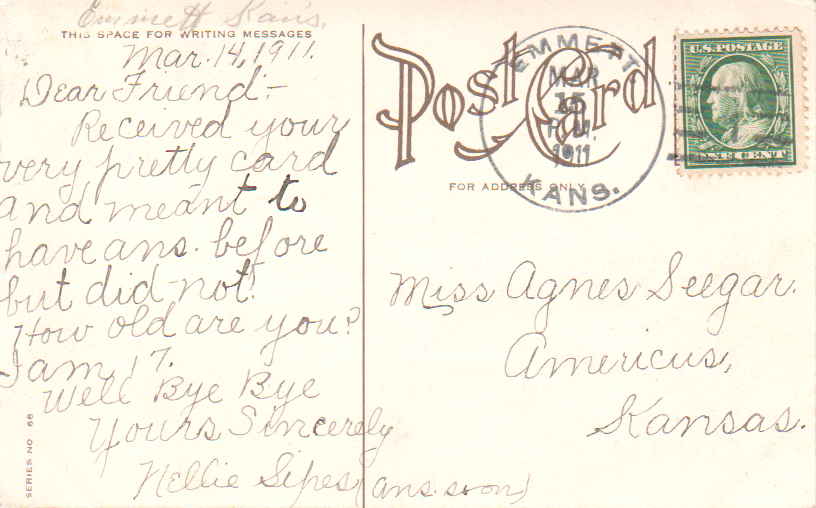 Emmett Kans.
THIS SPACE FOR WRITING MESSAGES
Mar. 14, 1911.
Dear Friend:-
Received your
very pretty card
and meant to
have ans. before
but did not!
How old are you?
I am 17.
Well Bye Bye
Yours Sincerely
Nellie Sipes (ans. soon)
SERIES NO 66
Post Card
FOR ADDRESS ONLY
EMMETT
MAR
15
P.M.
1911
KANS.
U.S. POSTAGE
ONE CENT
Miss Agnes Seegar.
Americus,
Kansas.